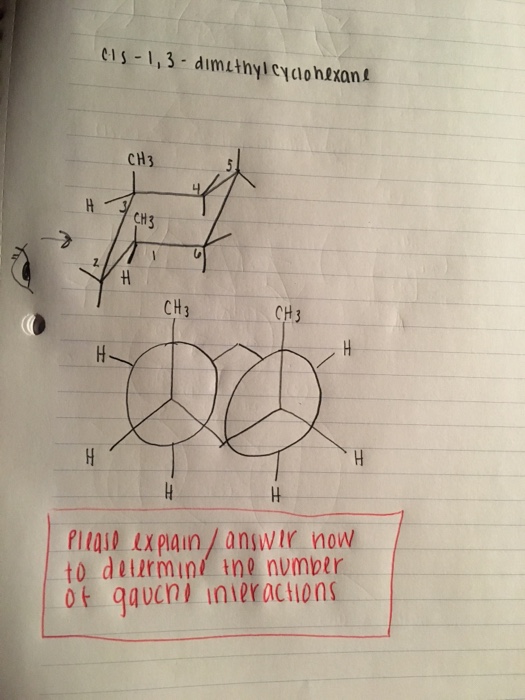 cis-1,3-dimethylcyclohexane
CH3
5
4
H
3
CH3
2
1
6
H
CH3
CH3
H
H
H
H
H
H
Please explain/answer how
to determine the number
of gauche interactions